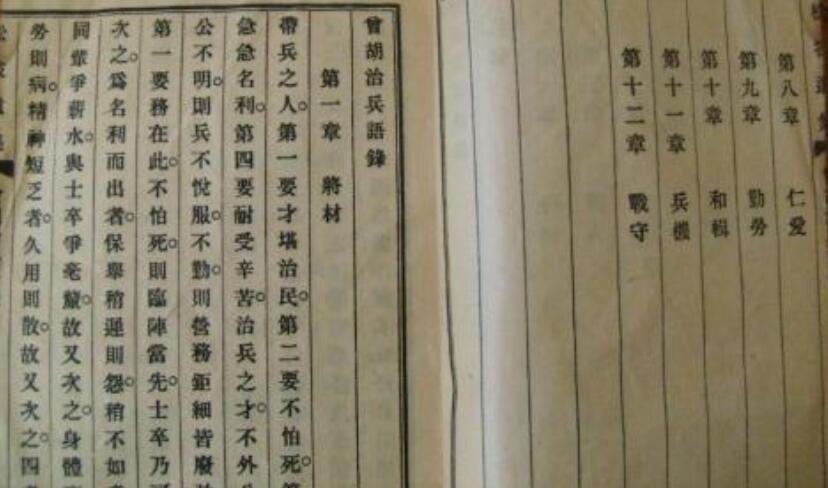 第八章 仁愛
第九章 勤勞
第十章 和輯
第十一章 兵機
第十二章 戰守
曾胡治兵語錄
第一章 將材
帶兵之人。第一要才堪治民。第二要不怕死。
急急名利。第四要耐受辛苦。治兵之才。不外
公不明。則兵不悅服。不勤。則營務鉅細皆廢
第一要務在此。不怕死。則臨陣當先。士卒乃
次之。爲名利而出者。保舉稍遲則怨。稍不如
同輩爭薪水。與士卒爭毫釐。故又次之。身體
勞則病。精神短乏者。久用則散。故又次之。四